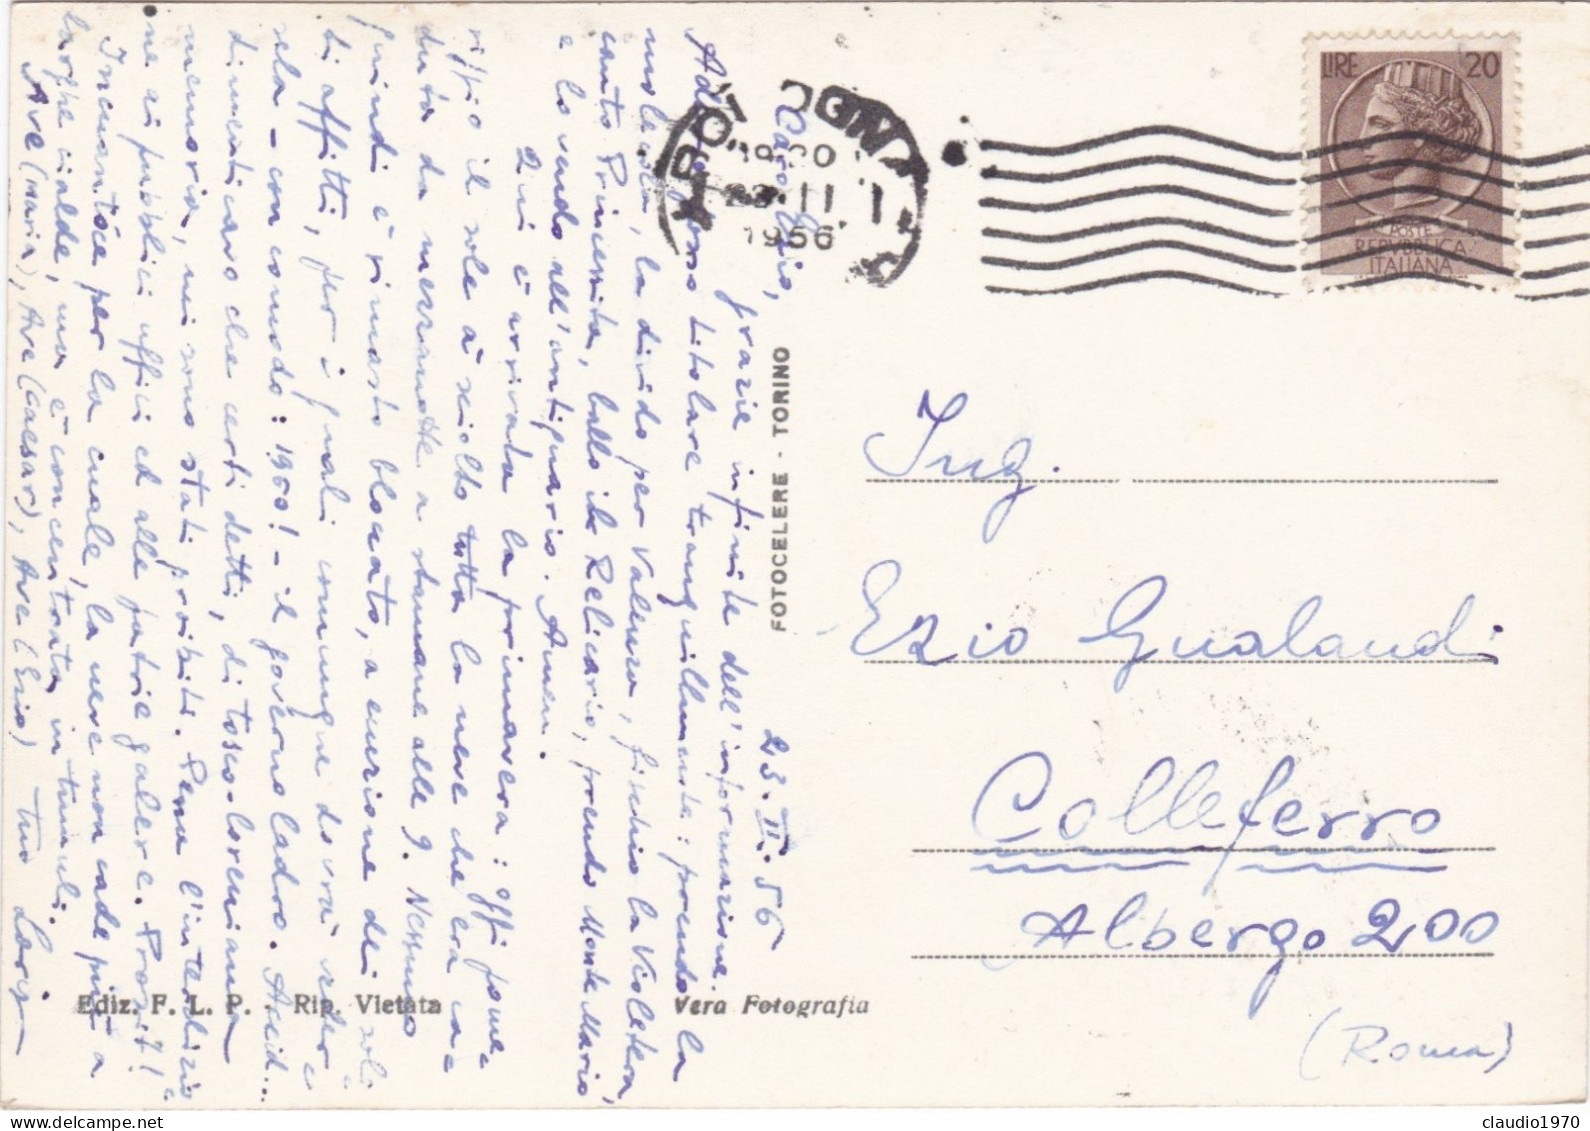 23.II.56
Caro Ezio,
grazie infinite dell'informazione.
Adesso posso titolare tranquillamente: prendo la
nuvolaccia, la divido per Valenza, fischio la Violetera,
canto Princesita, ballo il Relicario, prendo Monte Mario
e lo vendo all'antiquario. Amen.
Qui è arrivata la primavera: oggi pome-
riggio il sole à sciolto tutta la neve che era ca-
duta da mezzanotte a stamane alle 9. Nessuno
quindi è rimasto bloccato, a eccezione dei soli-
ti affitti, per i quali comunque dovrà veder-
sela - con comodo: 1960! - il governo ladro. Accid...
dimenticavo che certi detti, di tosco-loreniana
memoria, mi sono stati proibiti. Pena l'interdizio-
ne ai pubblici uffici ed alle patrie galere. Prosit!
Incuantoce per la cuale, la neve non cade più a
larghe cialde, ma è concentrata in tumuli.
Ave (Maria), Ave (Caesar), Ave (Ezio) Tuo
FOTOCELERE - TORINO
Ediz. F. L. P. - Rip. Vietata
Vera Fotografia
19-20
23.II
1956
LIRE 20
POSTE
REPVBBLICA
ITALIANA
Ing.
Ezio Gualandi
Colleferro
Albergo 200
(Roma)
claudio1970